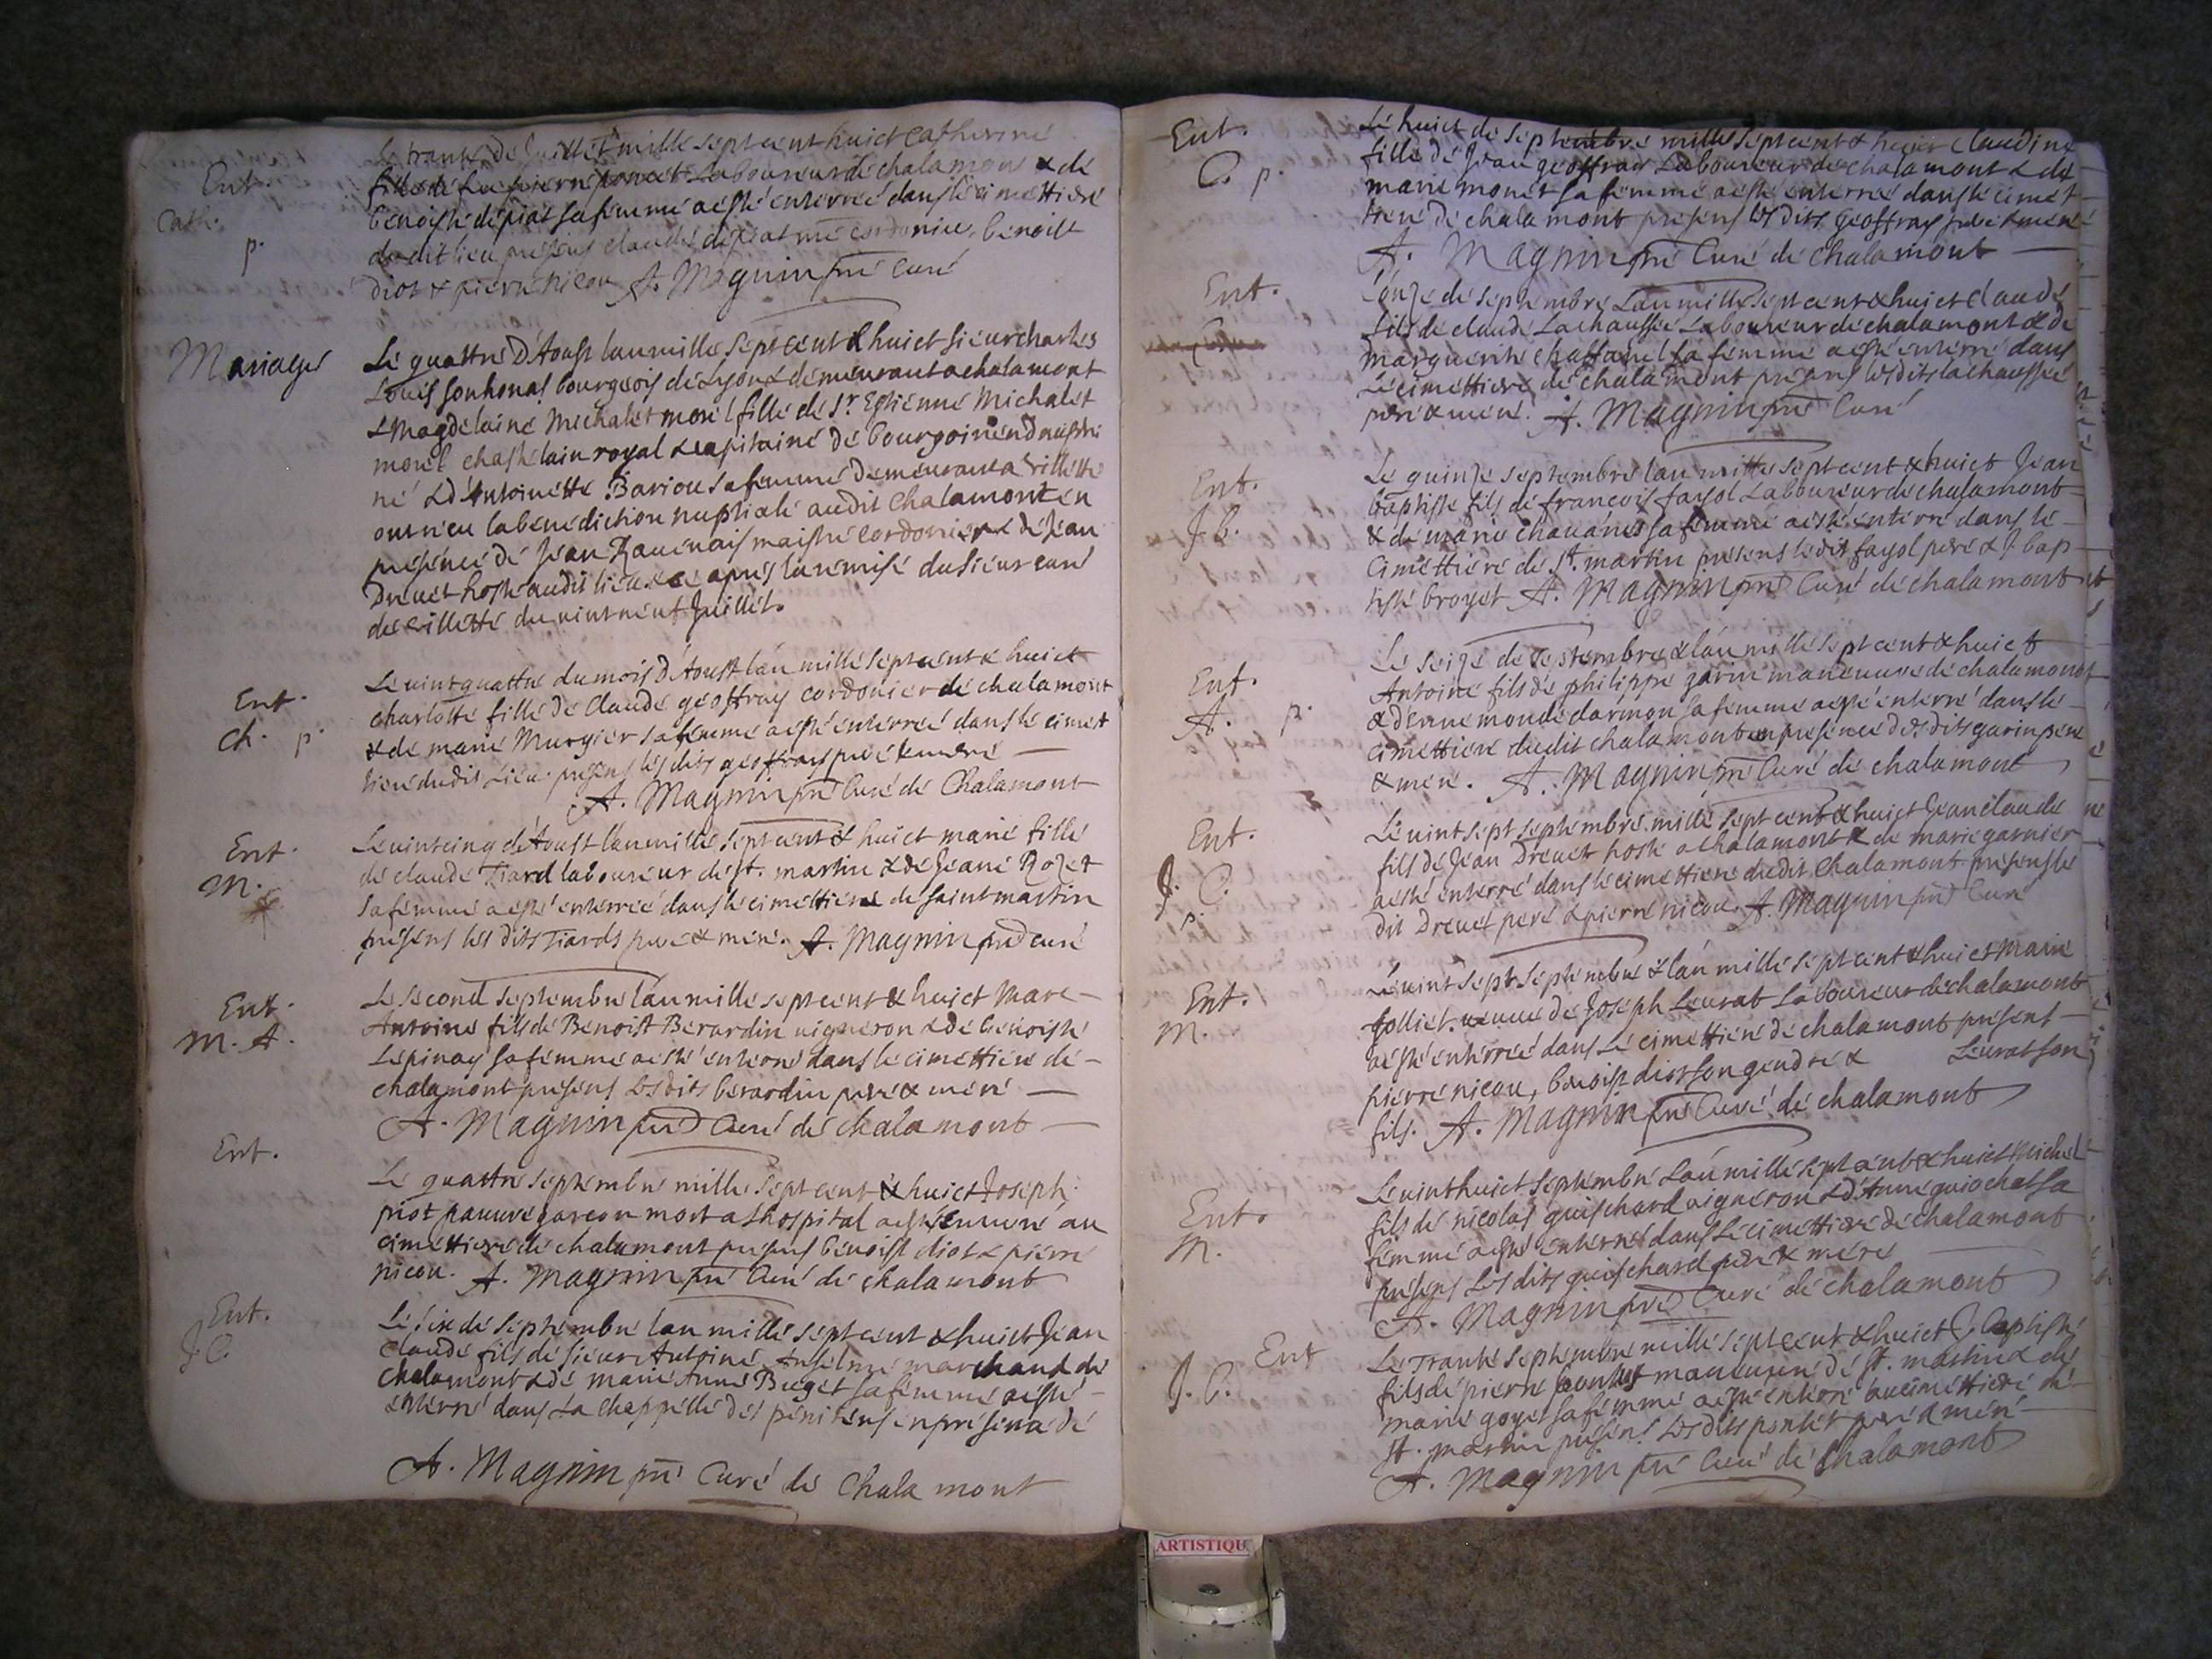 Ent.
Cath.
p.
Le trante de Juillet mille sept cent huict Catherine
fille de feu pierre poncet Laboureur de chalamon & de
benoiste depiat sa femme a esté enterreé dans le cimettiere
dudit lieu presens claude depiat me cordonier, benoist
diot & pierre nicou A. Magnin pre Curé
Mariages
Le quattre D'Aoust lan mille sept cent & huict sieur charles
Louis sonhonas bourgeois de Lyon & demeurant a chalamont
& Magdelaine Michalet morel fille de Sr Estienne Michalet
morel chastelain royal & capitaine de bourgoin en dauphi
né & d'Antoinette Bariou sa femme demeurant a villette
ont reçu la benediction nuptiale audit Chalamont en
presence de Jean Rauenais maistre cordonier & de Jean
Dreuet hoste audit lieu & ce apres la remise du sieur curé
de villette du vint neuf Juillet.
Ent.
ch. p.
Le vint quattre du mois d'Aoust lan mille sept cent & huict
charlotte fille de Claude geoffray cordonier de chalamont
& de marie Murgier sa femme a esté enterreé dans le cimet
tiere dudit Lieu. presens les dits geoffrays pere & mere
A. Magnin pre Curé de Chalamont
Ent.
M.
Le vint cinq d'Aoust lan mille sept cent & huict marie fille
de claude Tiard laboureur de st. martin & de Jeane Rozet
sa femme a esté enterreé dans le cimettiere de saint martin
presens les dits Tiards pere & mere. A. Magnin pre curé
Ent.
M. A.
Le second septembre lan mille sept cent & huict Marc
Antoine fils de Benoist Berardin vigneron & de benoiste
Lepinay sa femme a esté enterré dans le cimettiere de
chalamont presens Les dits berardin pere & mere
A. Magnin pre Curé de chalamont
Ent.
Le quattre septembre mille sept cent & huict Joseph
priot pauure garcon mort a Lhospital a esté enterré au
cimettiere de chalamont presens benoist diot & pierre
nicou. A. Magnin pre Curé de chalamont
Ent.
J. C.
Le six de septembre lan mille sept cent & huict Jean
Claude fils de sieur Antoine Anselme marchand de
chalamont & de marie Anne Buget sa femme a esté
enterré dans La chappelle des penitens en presence de
A. Magnin pre Curé de Chalamont
Ent.
C. p.
Le huict de septembre mille sept cent & huict claudine
fille de Jean geoffray Laboureur de chalamont & de
marie monet sa femme a esté enterreé dans le cimet
tiere de chalamont presens Les dits geoffray pere & mere
A. Magnin pre Curé de chalamont
Ent.
L'onze de septembre Lan mille sept cent & huict claude
fils de claude Lachaussée Laboureur de chalamont & de
marguerite chaffanel sa femme a esté enterré dans
Le cimettiere de chalamont presens les dits lachaussée
pere & mere. A. Magnin pre Curé
Ent.
J. b.
Le quinze septembre lan mille sept cent & huict Jean
baptiste fils de françois fayol Laboureur de chalamont
& de marie chauanes sa femme a esté enterré dans le
cimettiere de St. martin presens ledit fayol pere & J. bap
tiste broyet A. Magnin pre Curé de chalamont
Ent.
A. p.
Le seize de septembre & lan mille sept cent & huict
Antoine fils de philippe garin maneuure de chalamont
& d'ennemonde darmon sa femme a esté enterré dans le
cimettiere dudit chalamont en presence des dits garin pere
& mere. A. Magnin pre Curé de chalamont
Ent.
J. C.
p.
Le vint sept septembre mille sept cent & huict Jean claude
fils de Jean Dreuet hoste a chalamont & de marie garnier
a esté enterré dans le cimettiere dudit Chalamont presens le
dit Dreuet pere & pierre nicou. A. Magnin pre Curé
Ent.
M.
Le vint sept septembre & lan mille sept cent & huict marie
Jolliet. veuue de Joseph Leurat Laboureur de chalamont
a esté enterreé dans Le cimettiere de chalamont present
pierre nicou, benoist diot son gendre & Leurat son
fils. A. Magnin pre Curé de chalamont
Ent.
M.
Le vint huict septembre Lan mille sept cent & huict Michel
fils de nicolas guischard vigneron & d'Anne guiochet sa
femme a esté enterré dans Le cimettiere de chalamont
presens Les dits guischard pere & mere
A. Magnin pre Curé de chalamont
Ent
J. C.
Le Trante septembre mille sept cent & huict J. baptiste
fils de pierre pontet maneuure de st. martin & de
marie goyet sa femme a esté enterré au cimettiere de
st. martin presens Les dits pontet pere & mere
A. Magnin pre Curé de Chalamont
ARTISTIQU